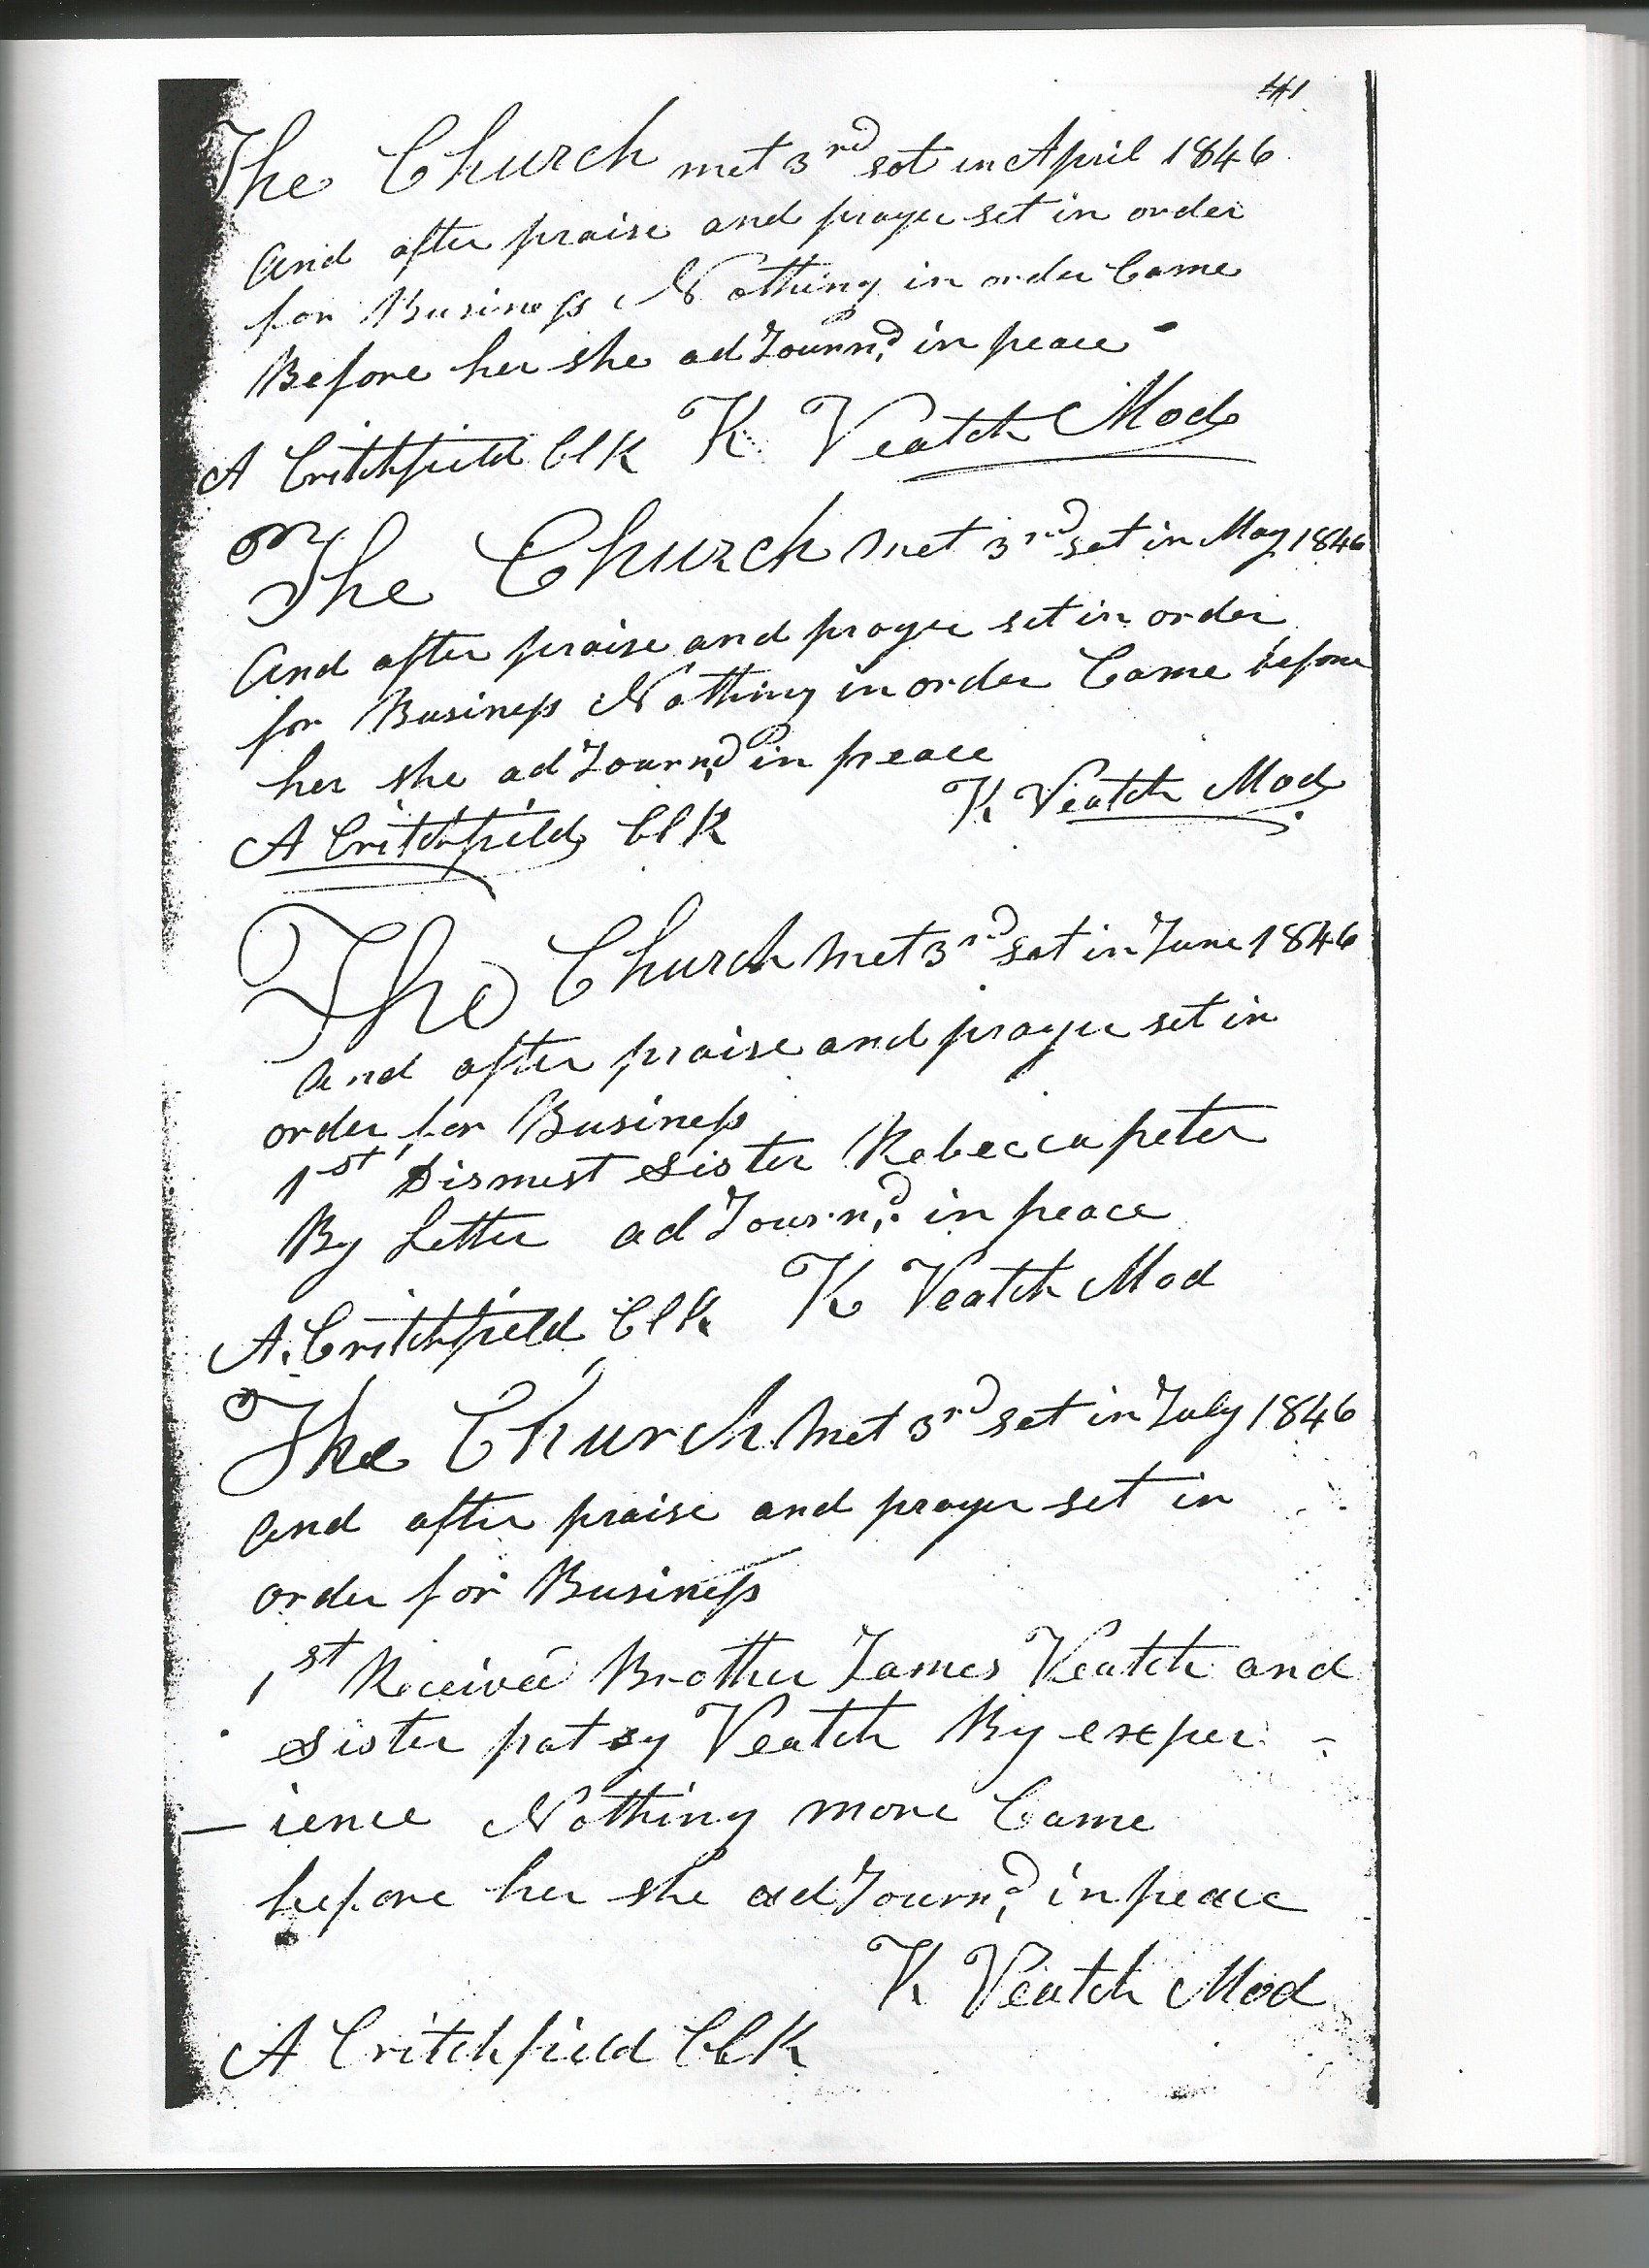 41
The Church met 3rd sat in April 1846
And after praise and prayer set in order
for Business Nothing in order Came
Before her she adJournd in peace
A Critchfield ClK K Veatch Mod
The Church met 3rd sat in May 1846
And after praise and prayer set in order
for Business Nothing in order Came before
her she adJournd in peace
K Veatch Mod
A Critchfield ClK
The Church met 3rd sat in June 1846
And after praise and prayer set in
order for Business
1st Dismust Sister Rebecca peter
By Letter adJournd in peace
A. Critchfield ClK K Veatch Mod
The Church met 3rd sat in July 1846
And after praise and prayer set in
order for Business
1st Received Brother James Veatch and
Sister patsy Veatch By exper-
-ience Nothing more Came
before her she adJournd in peace
K Veatch Mod
A Critchfield ClK